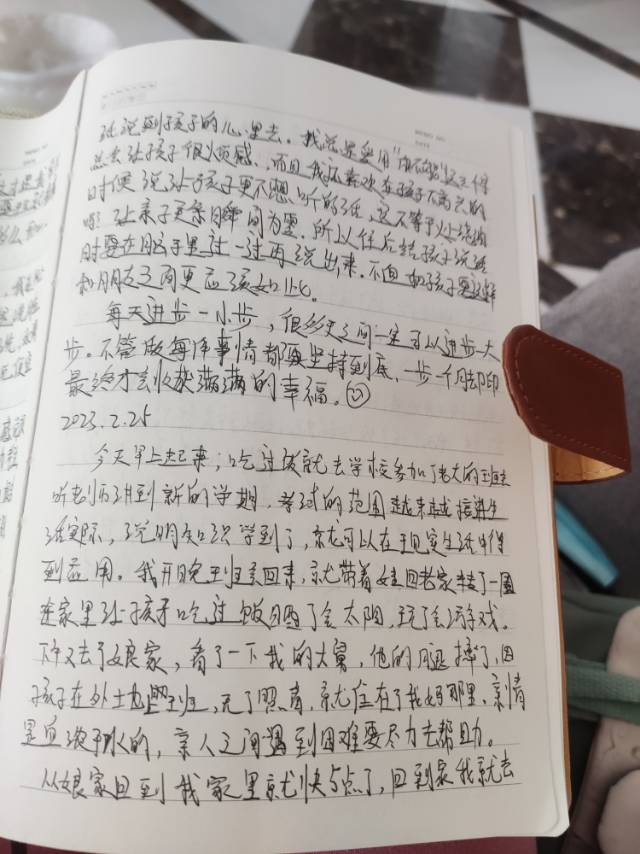 话说到孩子的心里去。我总是爱用"你不能"这三个字
总去让孩子很烦感,而且我还喜欢在孩子不高兴的
时候说让孩子更不想听的话,这不等于火上浇油
吗?让亲子关系瞬间为零。所以往后给孩子说话
时要在脑子里过一过再说出来。不但和孩子要这样
和朋友之间更应该如此。
每天进步一小步,很多天之间一定可以进步一大
步。不管做每件事情都要坚持到底、一步一个脚印
最终才会收获满满的幸福。
2023.2.25
今天早上起来,吃过饭就去学校参加了老大的班会
听老师讲到新的学期,考试的范围越来越接近生
活实际,说明知识学到了,就可以在现实生活中得
到应用。我开完班会回来,就带着娃回老家转了一圈
在家里让孩子吃过饭晒了会太阳,玩了会游戏。
下午又去了娘家,看了一下我的大舅,他的腿摔了,因
孩子在外土地上班,无了照看,就住在了我妈那里,亲情
是血浓于水的,亲人之间遇到困难要尽力去帮助。
从娘家回到我家里就快5点了,回到家我就去